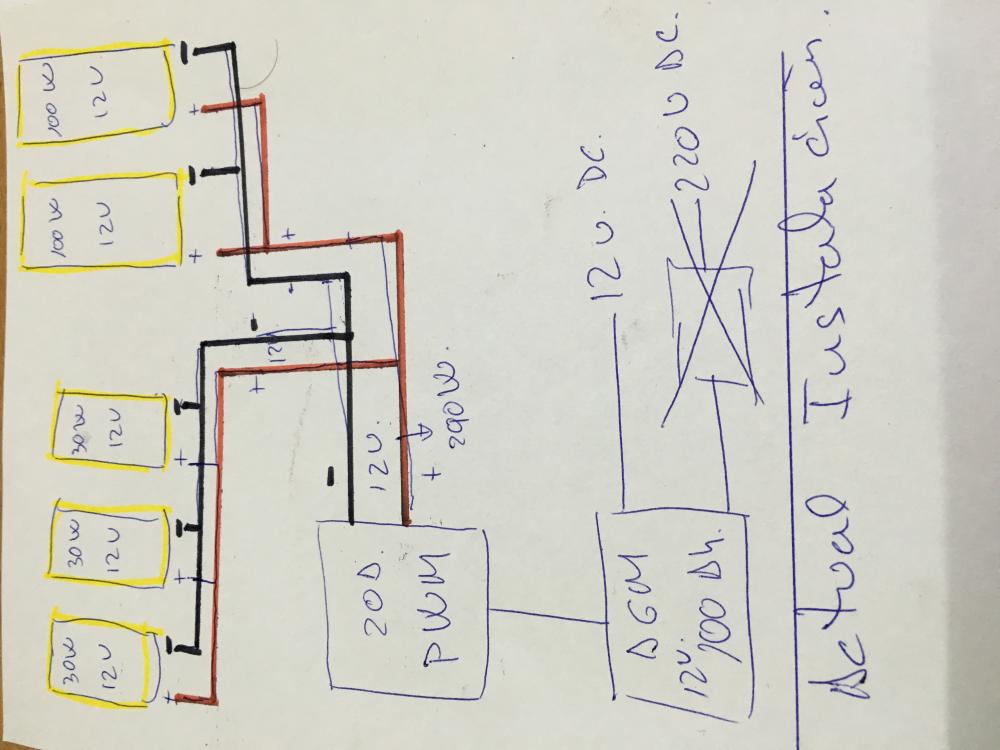 30W
12V
30W
12V
30W
12V
100W
12V
100W
12V
12V
12V.
+ 290W.
20A
PWM
AGM
12V.
100 Ah.
12V. DC.
220V DC.
Actual Instalación.